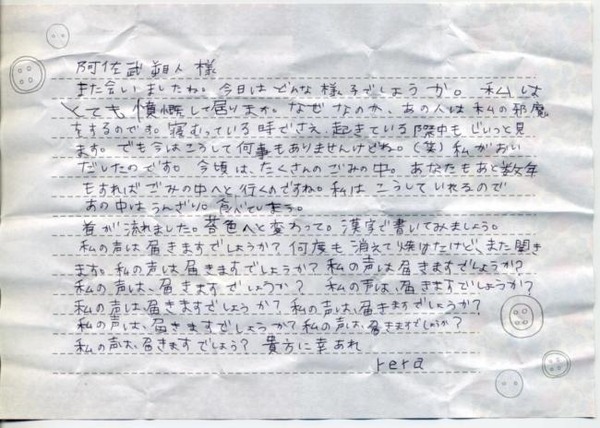 阿佐武朔人 様
また会いましたわ。今日はどんな様子でしょうか。私は
とても憤慨して居ります。なぜなのか、あの人は私の邪魔
をするのです。寝むっている時でさえ、起きている際中もじいっと見
ます。でも今はこうして何事もありませんけどね。(笑)私がおい
だしたのです。今頃は、たくさんのごみの中。あなたもあと数年
もすればごみの中へと行くのですね。私はこうしていれるので
あの中はうんざり。食べてしまう。
首が流れました。苔色へと変わって。漢字で書いてみましょう。
私の声は届きますでしょうか?何度も消えて焼けたけど、また聞き
ます。私の声は、届きますでしょうか?私の声は、届きますでしょうか?
私の声は、届きますでしょうか? 私の声は、届きますでしょうか?
私の声は、届きますでしょうか?私の声は、届きますでしょうか?
私の声は、届きますでしょうか?私の声は、届きますでしょうか?
私の声は、届きますでしょう?貴方に幸あれ
rera